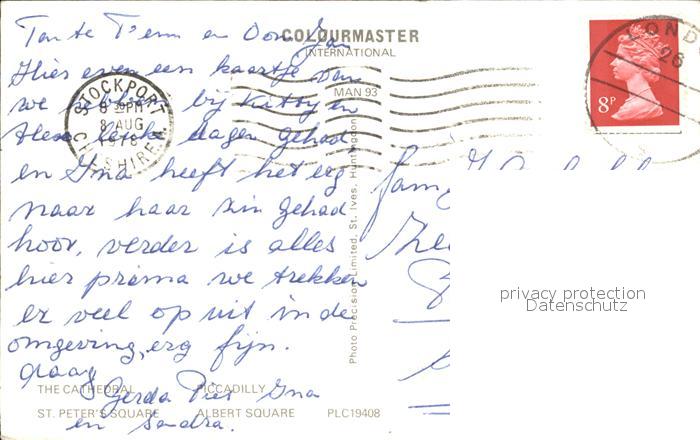 Tante T'enn en Oom Jan
Hier even een kaartje van
we hebben bij Kitty en
leuke dagen gehad
en Ina heeft het erg
naar haar zin gehad
hoor, verder is alles
hier prima we trekken
er veel op uit in de
omgeving, erg fijn.
daag
Gerda Piet Ina
en Sandra.
COLOURMASTER
INTERNATIONAL
MAN 93
STOCKPORT
CHESHIRE
9 30PM
8 AUG
1978
Photo Precision Limited, St. Ives, Huntingdon
THE CATHEDRAL PICCADILLY
ST. PETER'S SQUARE ALBERT SQUARE PLC19408
8P
LOND
26
fam
privacy protection
Datenschutz